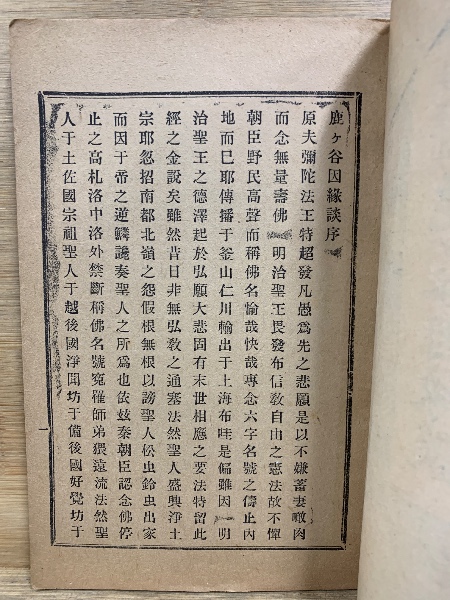 鹿ヶ谷因緣談序
原夫彌陀法王特超發凡愚爲先之悲願是以不嫌蓄妻噉肉
而念無量壽佛　明治聖王畏發布信敎自由之憲法故不憚
朝臣野民高聲而稱佛名愉哉快哉專念六字名號之儔止內
地而已耶傳播于釜山仁川輸出于上海布哇是偏雖因　明
治聖王之德澤起於弘願大悲固有末世相應之要法特留此
經之金說矣雖然昔日非無弘敎之通塞法然聖人盛興淨土
宗耶忽招南都北嶺之怨假根無根以謗聖人松虫鈴虫出家
而因于帝之逆鱗讒奏聖人之所爲也依玆秦朝臣認念佛停
止之高札洛中洛外禁斷稱佛名號寃罹師弟猥遠流法然聖
人于土佐國宗祖聖人于越後國淨聞坊于備後國好覺坊于
一